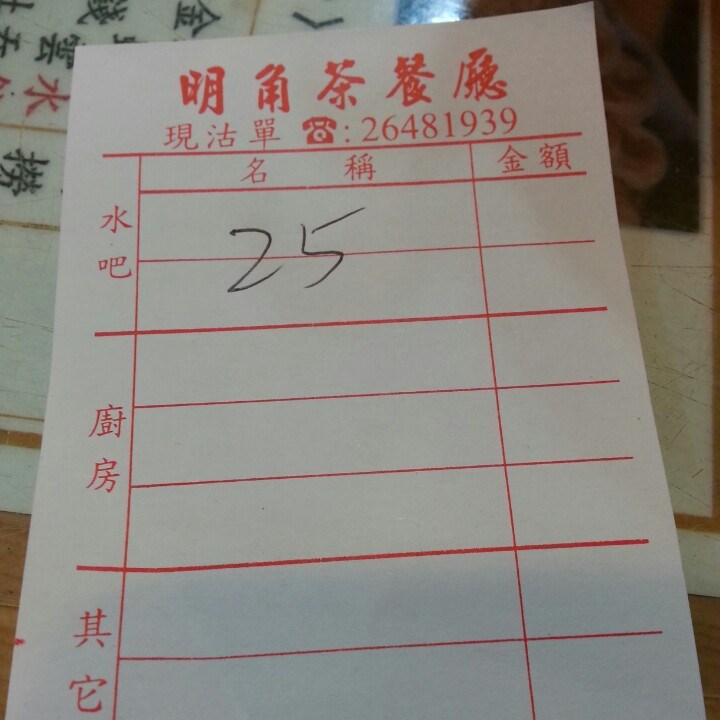 明角茶餐廳
現沽單 ☎:26481939
名稱 金額
水吧
25
廚房
其它